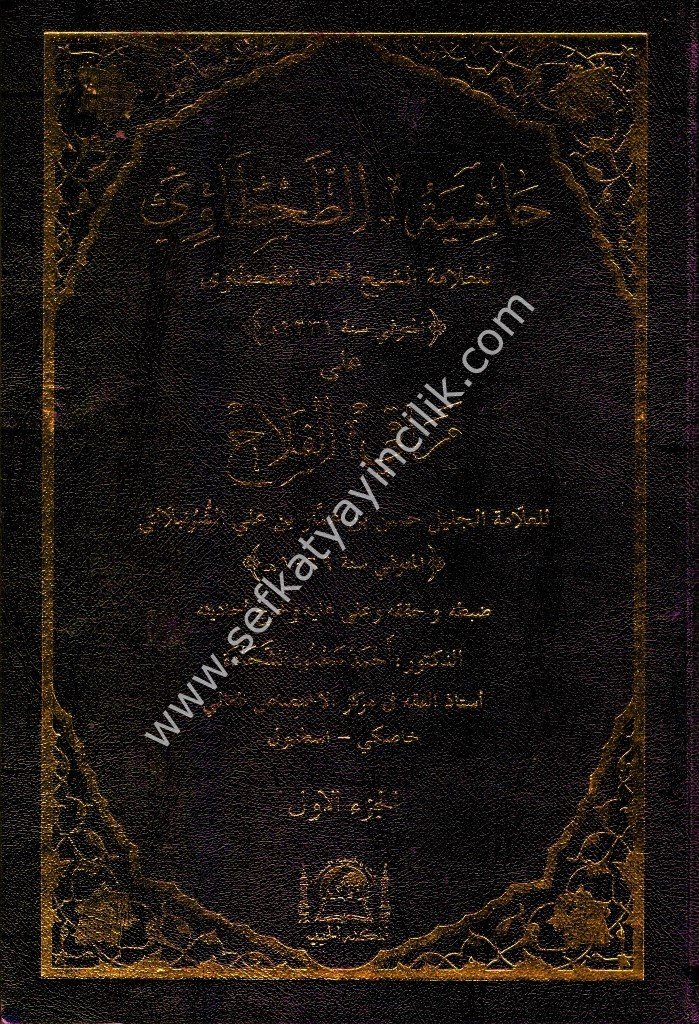 حَاشِيَةُ الطَّحْطَاوِيِّ
للعلامة الشيخ أحمد الطحطاوي
﴿المتوفى سنة
على
مَرَاقِي الْفَلَاحِ
للعلّامة الجليل حسن بن بن علي الشُّرُنبلالي
﴿المتوفى سنة
ضبطه وحققه وعلق عليه
الدكتور:
أستاذ الفقه في مركز
خاصكي – استانبول
الجزء الأول
www.sefkatyayincilik.com